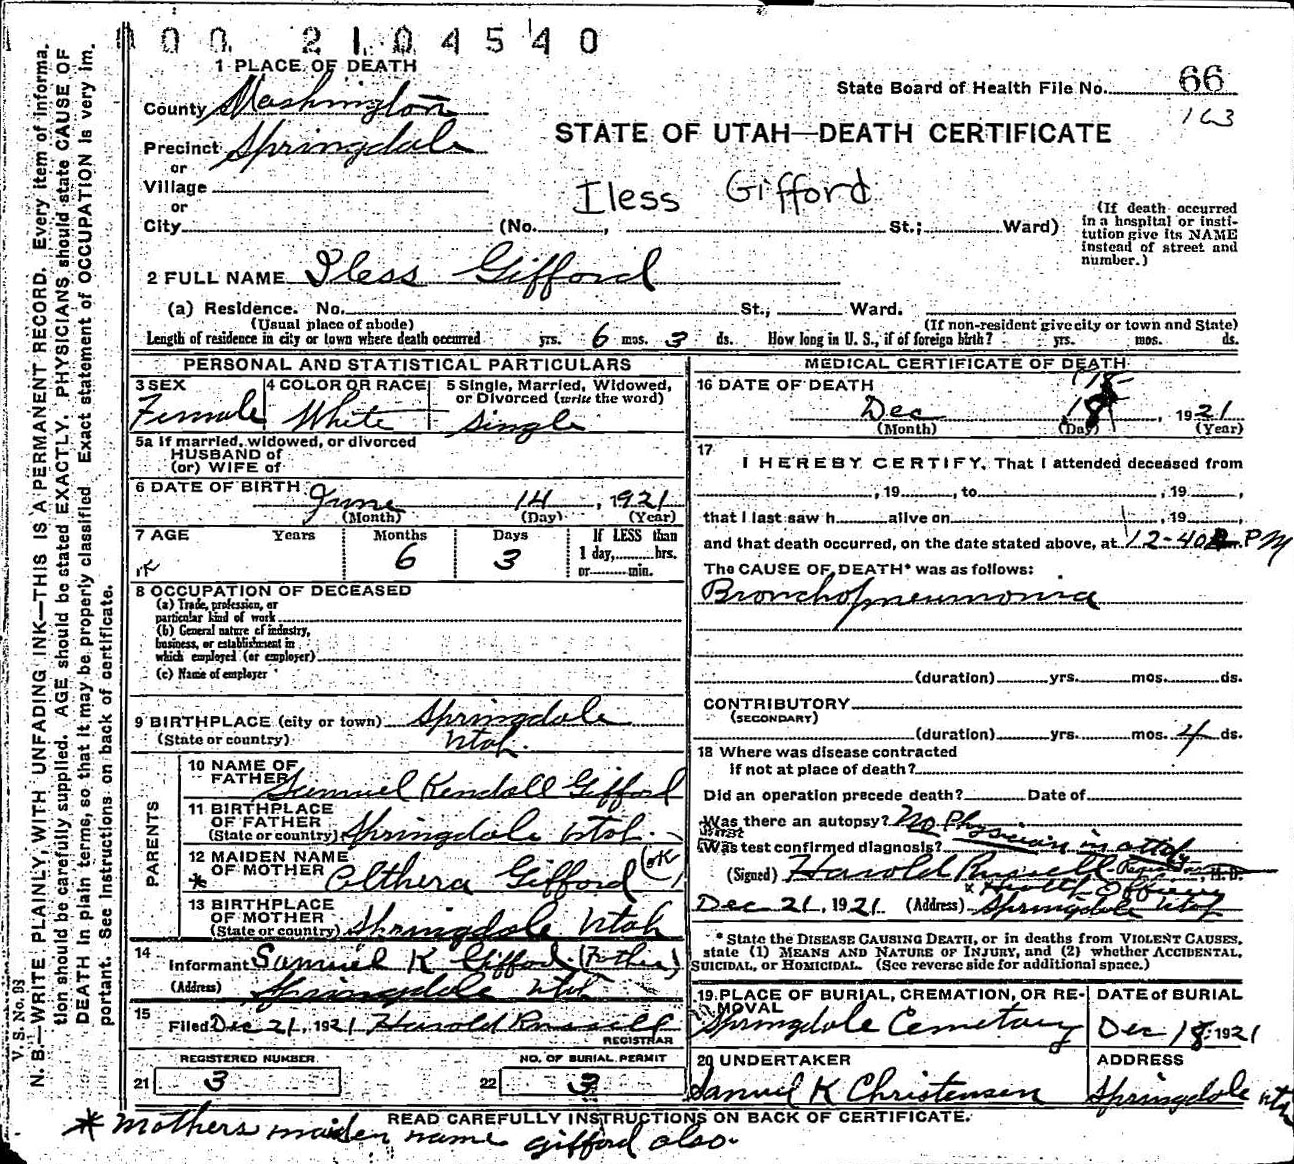 00 2104540
1 PLACE OF DEATH
County Washington
State Board of Health File No. 66
163
Precinct Springdale
STATE OF UTAH—DEATH CERTIFICATE
or
Village
Iless Gifford
or
City (No. , St.; Ward)
(If death occurred in a hospital or insti-
tution give its NAME
instead of street and
number.)
2 FULL NAME Iless Gifford
(a) Residence. No. St., Ward.
(Usual place of abode) (If non-resident give city or town and State)
Length of residence in city or town where death occurred yrs. 6 mos. 3 ds. How long in U. S., if of foreign birth? yrs. mos. ds.
PERSONAL AND STATISTICAL PARTICULARS
3 SEX Female
4 COLOR OR RACE White
5 Single, Married, Widowed,
or Divorced (write the word)
Single
5a If married, widowed, or divorced
HUSBAND of
(or) WIFE of
6 DATE OF BIRTH June 14, 1921
(Month) (Day) (Year)
7 AGE Years Months Days If LESS than
1 day, hrs.
or min.
6 3
8 OCCUPATION OF DECEASED
(a) Trade, profession, or
particular kind of work
(b) General nature of industry,
business, or establishment in
which employed (or employer)
(c) Name of employer
9 BIRTHPLACE (city or town) Springdale
(State or country) Utah.
PARENTS
10 NAME OF
FATHER Samuel Kendall Gifford
11 BIRTHPLACE
OF FATHER
(State or country) Springdale Utah.
12 MAIDEN NAME
OF MOTHER Althera Gifford (OK)
*
13 BIRTHPLACE
OF MOTHER
(State or country) Springdale Utah
14 Informant Samuel K Gifford (Father)
(Address) Springdale Utah
15 Filed Dec 21, 1921 Harold Russell
REGISTRAR
REGISTERED NUMBER
21 3
NO. OF BURIAL PERMIT
22 3
MEDICAL CERTIFICATE OF DEATH
16 DATE OF DEATH
Dec , 1921
(Month) (Day) (Year)
17
I HEREBY CERTIFY, That I attended deceased from
, 19 , to , 19 ,
that I last saw h alive on , 19 ,
and that death occurred, on the date stated above, at 12-40 PM
The CAUSE OF DEATH* was as follows:
Bronchopneumonia
(duration) yrs. mos. ds.
CONTRIBUTORY
(SECONDARY)
(duration) yrs. mos. 4 ds.
18 Where was disease contracted
if not at place of death?
Did an operation precede death? Date of
Was there an autopsy? No Physician in
Was test confirmed diagnosis?
(Signed) Harold Russell M.D.
Health Officer
Dec 21, 1921 (Address) Springdale Utah
* State the DISEASE CAUSING DEATH, or in deaths from VIOLENT CAUSES,
state (1) MEANS AND NATURE OF INJURY, and (2) whether ACCIDENTAL,
SUICIDAL, or HOMICIDAL. (See reverse side for additional space.)
19 PLACE OF BURIAL, CREMATION, OR RE-
MOVAL
Springdale Cemetary
DATE of BURIAL
Dec 18, 1921
20 UNDERTAKER
Samuel K Christensen
ADDRESS
Springdale Utah
READ CAREFULLY INSTRUCTIONS ON BACK OF CERTIFICATE.
* Mothers maiden name gifford also.
V. S. No. 98
N. B.—WRITE PLAINLY, WITH UNFADING INK—THIS IS A PERMANENT RECORD. Every item of informa-
tion should be carefully supplied. AGE should be stated EXACTLY. PHYSICIANS should state CAUSE OF
DEATH in plain terms, so that it may be properly classified. Exact statement of OCCUPATION is very im-
portant. See instructions on back of certificate.